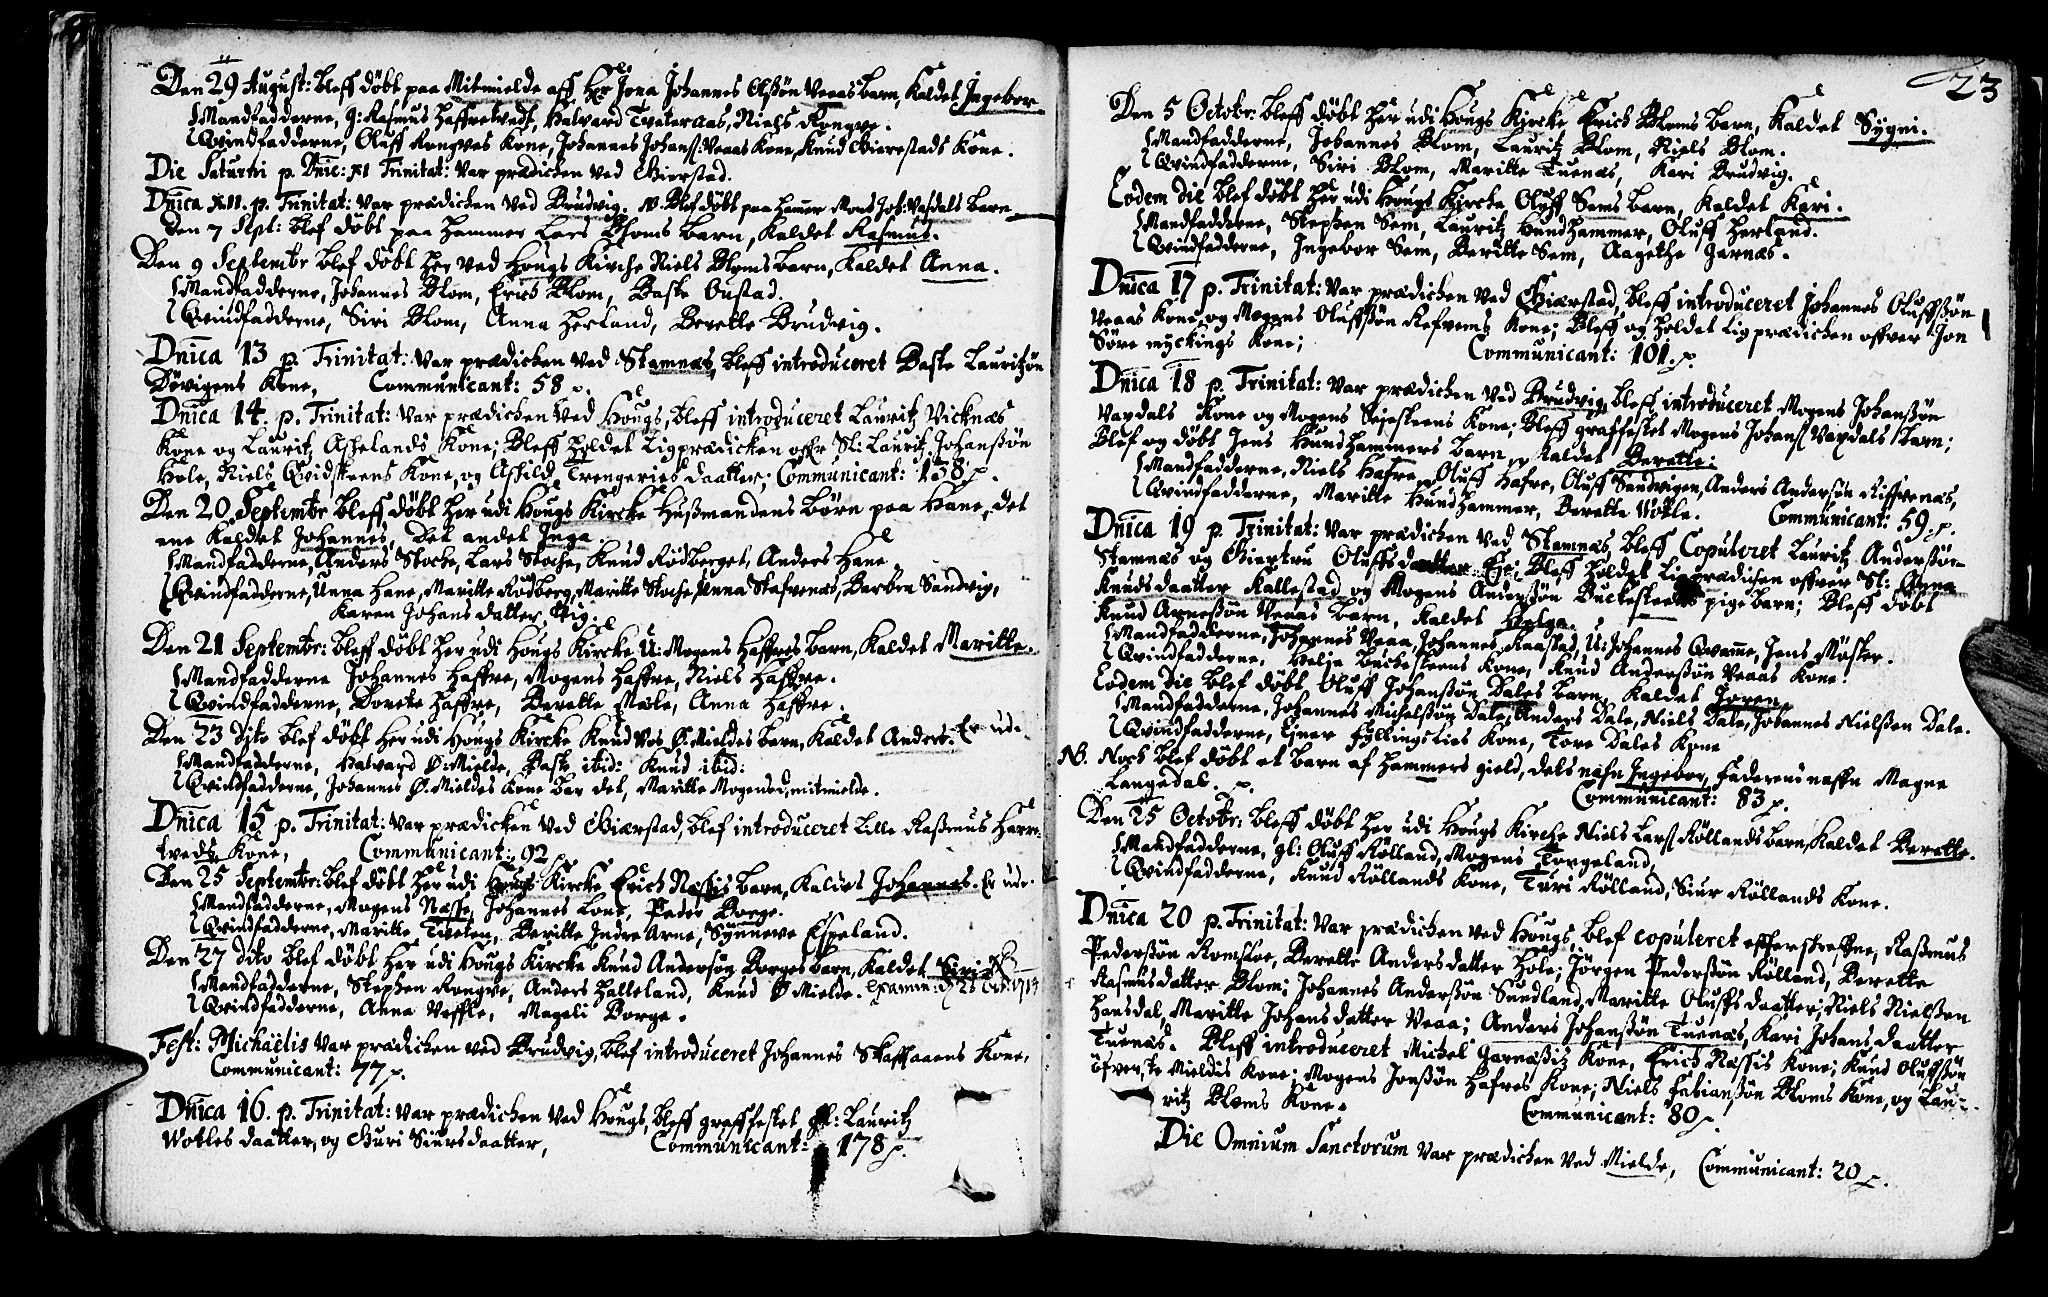 Den 29 August: bleff döbt paa Mitmielde aff Her Jona Johannes Olßön Veaas barn, Kaldet Ingebor
Mandfadderne, J: Rasmus Haffretvedt, Halvard Tvateraas, Niels Rongve.
Qvindfadderne, Oluff Rongves Kone, Johannes Johanß: Veaas Kone, Knud Gierestads Kone.
Die Saturni p. Dnic: XI Trinitat: Var prædicken ved Gierstad.
Dnica XII. p. Trinitat: Var prædicken ved Brudvig. N Blef döbt paa Hamer Mons Joh: Vaxdals barn
Den 7 Sept: blef döbt paa Hammer Lars Bloms barn, Kaldet Rasmus.
Den 9 Septembr blef döbt her ved Hougs Kircke Niels Bloms barn, Kaldet Anna.
Mandfadderne, Johannes Blom, Erich Blom, Baste Oustad.
Qvindfadderne, Siri Blom, Anna Herland, Berette Brudvig.
Dnica 13 p. Trinitat: Var prædicken ved Stamnæs, bleff introduceret Baste Lauritzön
Dövigens Kone, Communicant: 58 p.
Dnica 14. p. Trinitat: Var prædicken ved Hougs, bleff introduceret Lauritz Vicknæs
Kone og Lauritz Aspelands Kone; Bleff holdet Ligprædicken offr Sl: Lauritz Johanßön
Hole, Niels Qvidsteens Kone, og Ashild Trengeries daatter; Communicant: 138 p.
Den 20. Septembr bleff döbt her udi Hougs Kircke Hußmandens börn paa Hane, det
ene Kaldet Johannes, Det andet Inga.
Mandfadderne, Anders Stocke, Lars Stocke, Knud Rödberget, Anders Hane
Qvindfadderne, Anna Hane, Maritte Rödberg, Maritte Stocke, Anna Stafvenæs, Barbra Sandvig,
Karen Johans datter, Vig.
Den 21 Septembr: bleff döbt her udi Hougs Kircke U: Mogens Haffres barn, Kaldet Maritte.
Mandfadderne Johannes Haffre, Mogens Haffre, Niels Haffre.
Qvindfadderne, Dorete Haffre, Berette Mæle, Anna Haffre.
Den 23 dito blef döbt her udi Hougs Kircke Knud Vos Ø. Mieldes barn, Kaldet Anders. Er ud.
Mandfadderne, Halvard Ø: Mielde, Baste ibid: Knud ibid:
Qvindfadderne, Johannes Ø. Mieldes Kone bar det, Maritte Mogensd, mitmielde.
Dnica 15 p. Trinitat: Var prædicken ved Giærstad, blef introduceret Lille Raßmus Harre
tveds Kone, Communicant: 92
Den 25 Septembr: blef döbt her udi Hougs Kircke Erich Næssis barn, Kaldet Johannes. Er ud.
Mandfadderne, Mogens Næsse, Johannes Lone, Peder Borge.
Qvindfadderne, Maritte Tveten, Beritte Indre Arne, Synneve Espeland.
Den 27 dito blef döbt her udi Hougs Kircke Knud Andersøn Borges barn, Kaldet Siri
Mandfadderne, Stephen Rongve, Anders Halleland, Knud Ø Mielde. Examin: d 28 Oct: 1714
Qvindfadderne, Anna Veffle, Mageli Borge.
Fest: Michaëlis Var prædicken ved Brudvig, blef introduceret Johannes Skafftaaens Kone,
Communicant: 77 p.
Dnica 16. p. Trinitat: Var prædicken ved Hougs, bleff graffestet Lauritz
Wotles daatter, og Guri Siursdaatter, Communicant: 178 p.
23
Den 5 Octobr: bleff döbt her udi Hougs Kircke Erich Bloms barn, Kaldet Sygni.
Mandfadderne, Johannes Blom, Lauritz Blom, Niels Blom.
Qvindfadderne, Siri Blom, Maritte Tuenæs, Kari Brudvig.
Eodem die blef döbt her udi Hougs Kircke Oluff Sems barn, Kaldet Kari.
Mandfadderne, Stephen Sem, Lauritz Hundhammer, Oluff Herland.
Qvindfadderne, Ingebor Sem, Beritte Sem, Aagethe Garnæs.
Dnica 17 p. Trinitat: Var prædicken ved Giærstad, bleff introduceret Johannes Oluffßön
Veaas Kone, og Mogens Oluffßön Refvems Kone; Bleff og holdet Ligprædicken offver Jon
Söre myckings Kone; Communicant: 101. p.
Dnica 18 p. Trinitat: Var prædicken ved Brudvig, bleff introduceret Mogens Johanßön
Vaxdals Kone og Mogens Sejesteens Kone; Bleff graffestet Mogens Johanß Vaxdals barn;
Blef og döbt Jens Hundhammers barn, Kaldet Berette:
Mandfadderne, Niels Hafre, Oluff Hafre, Oluff Sandvigen, Anders Andersön Risfvenæs,
Qvindfadderne, Maritte Hundhammer, Berette Wotle. Communicant: 59 p.
Dnica 19 p. Trinitat: Var prædicken ved Stamnæs, bleff Copuleret Lauritz Anderßön
Stamnæs og Giertru Oluffsdaatter Eje; Bleff holdet Ligprædicken offver Sl: Anna
Knudsdaatter Kallestad og Mogens Anderßön Buckesteens pigebarn; Bleff döbt
Knud Arneßön Veaas barn, Kaldet Helga.
Mandfadderne, Johannes Veaa, Johannes Raastad, U: Johannes Qvamme, Jens Møster.
Qvindfadderne, Helje buckesteens Kone, Knud Anderßön Veaas Kone.
Eodem die blef döbt Oluff Johanßön Dales barn, Kaldet Joren.
Mandfadderne, Johannes Michelßön Dale, Anders Dale, Niels Dale, Johannes Nielßen Dale.
Qvindfadderne, Einer Fyllingslies Kone, Tore Dales Kone
NB. Noch blef döbt et barn af Hammers gield, dets nafn Ingebor, faderens naffn Magne
Langedal. Communicant: 83 p.
Den 25 Octobr: bleff döbt her udi Hougs Kircke Niels Larß Röllands barn, Kaldet Berette.
Mandfadderne, gl: Oluff Rölland, Mogens Torgeland,
Qvindfadderne, Knud Röllands Kone, Turi Rölland, Siur Röllands Kone.
Dnica 20 p. Trinitat: Var prædicken ved Hougs, blef copuleret effterskreffne, Raßmus
Pederßön Romsloe, Berette Andersdatter Hole; Jörgen Pederßön Rölland, Berette
Rasmusdatter Blom; Johannes Anderßön Sundland, Maritte Olusfsdaatter; Niels Nielßen
Hansdal, Maritte Johansdatter Veaa; Anders Johanßön Tuenæs, Kari Johans daatter
Tuenæs. Bleff introduceret Michel Garnæsis Kone, Erich Næssis Kone; Knud Oluffßön
öfverste Mieldis Kone; Mogens Jonßön Hafres Kone; Niels Fabianßön Bloms Kone, og Lau-
ritz Bloms Kone. Communicant: 80 p.
Die Omnium Sanctorum Var prædicken ved Mielde, Communicant: 20 p.